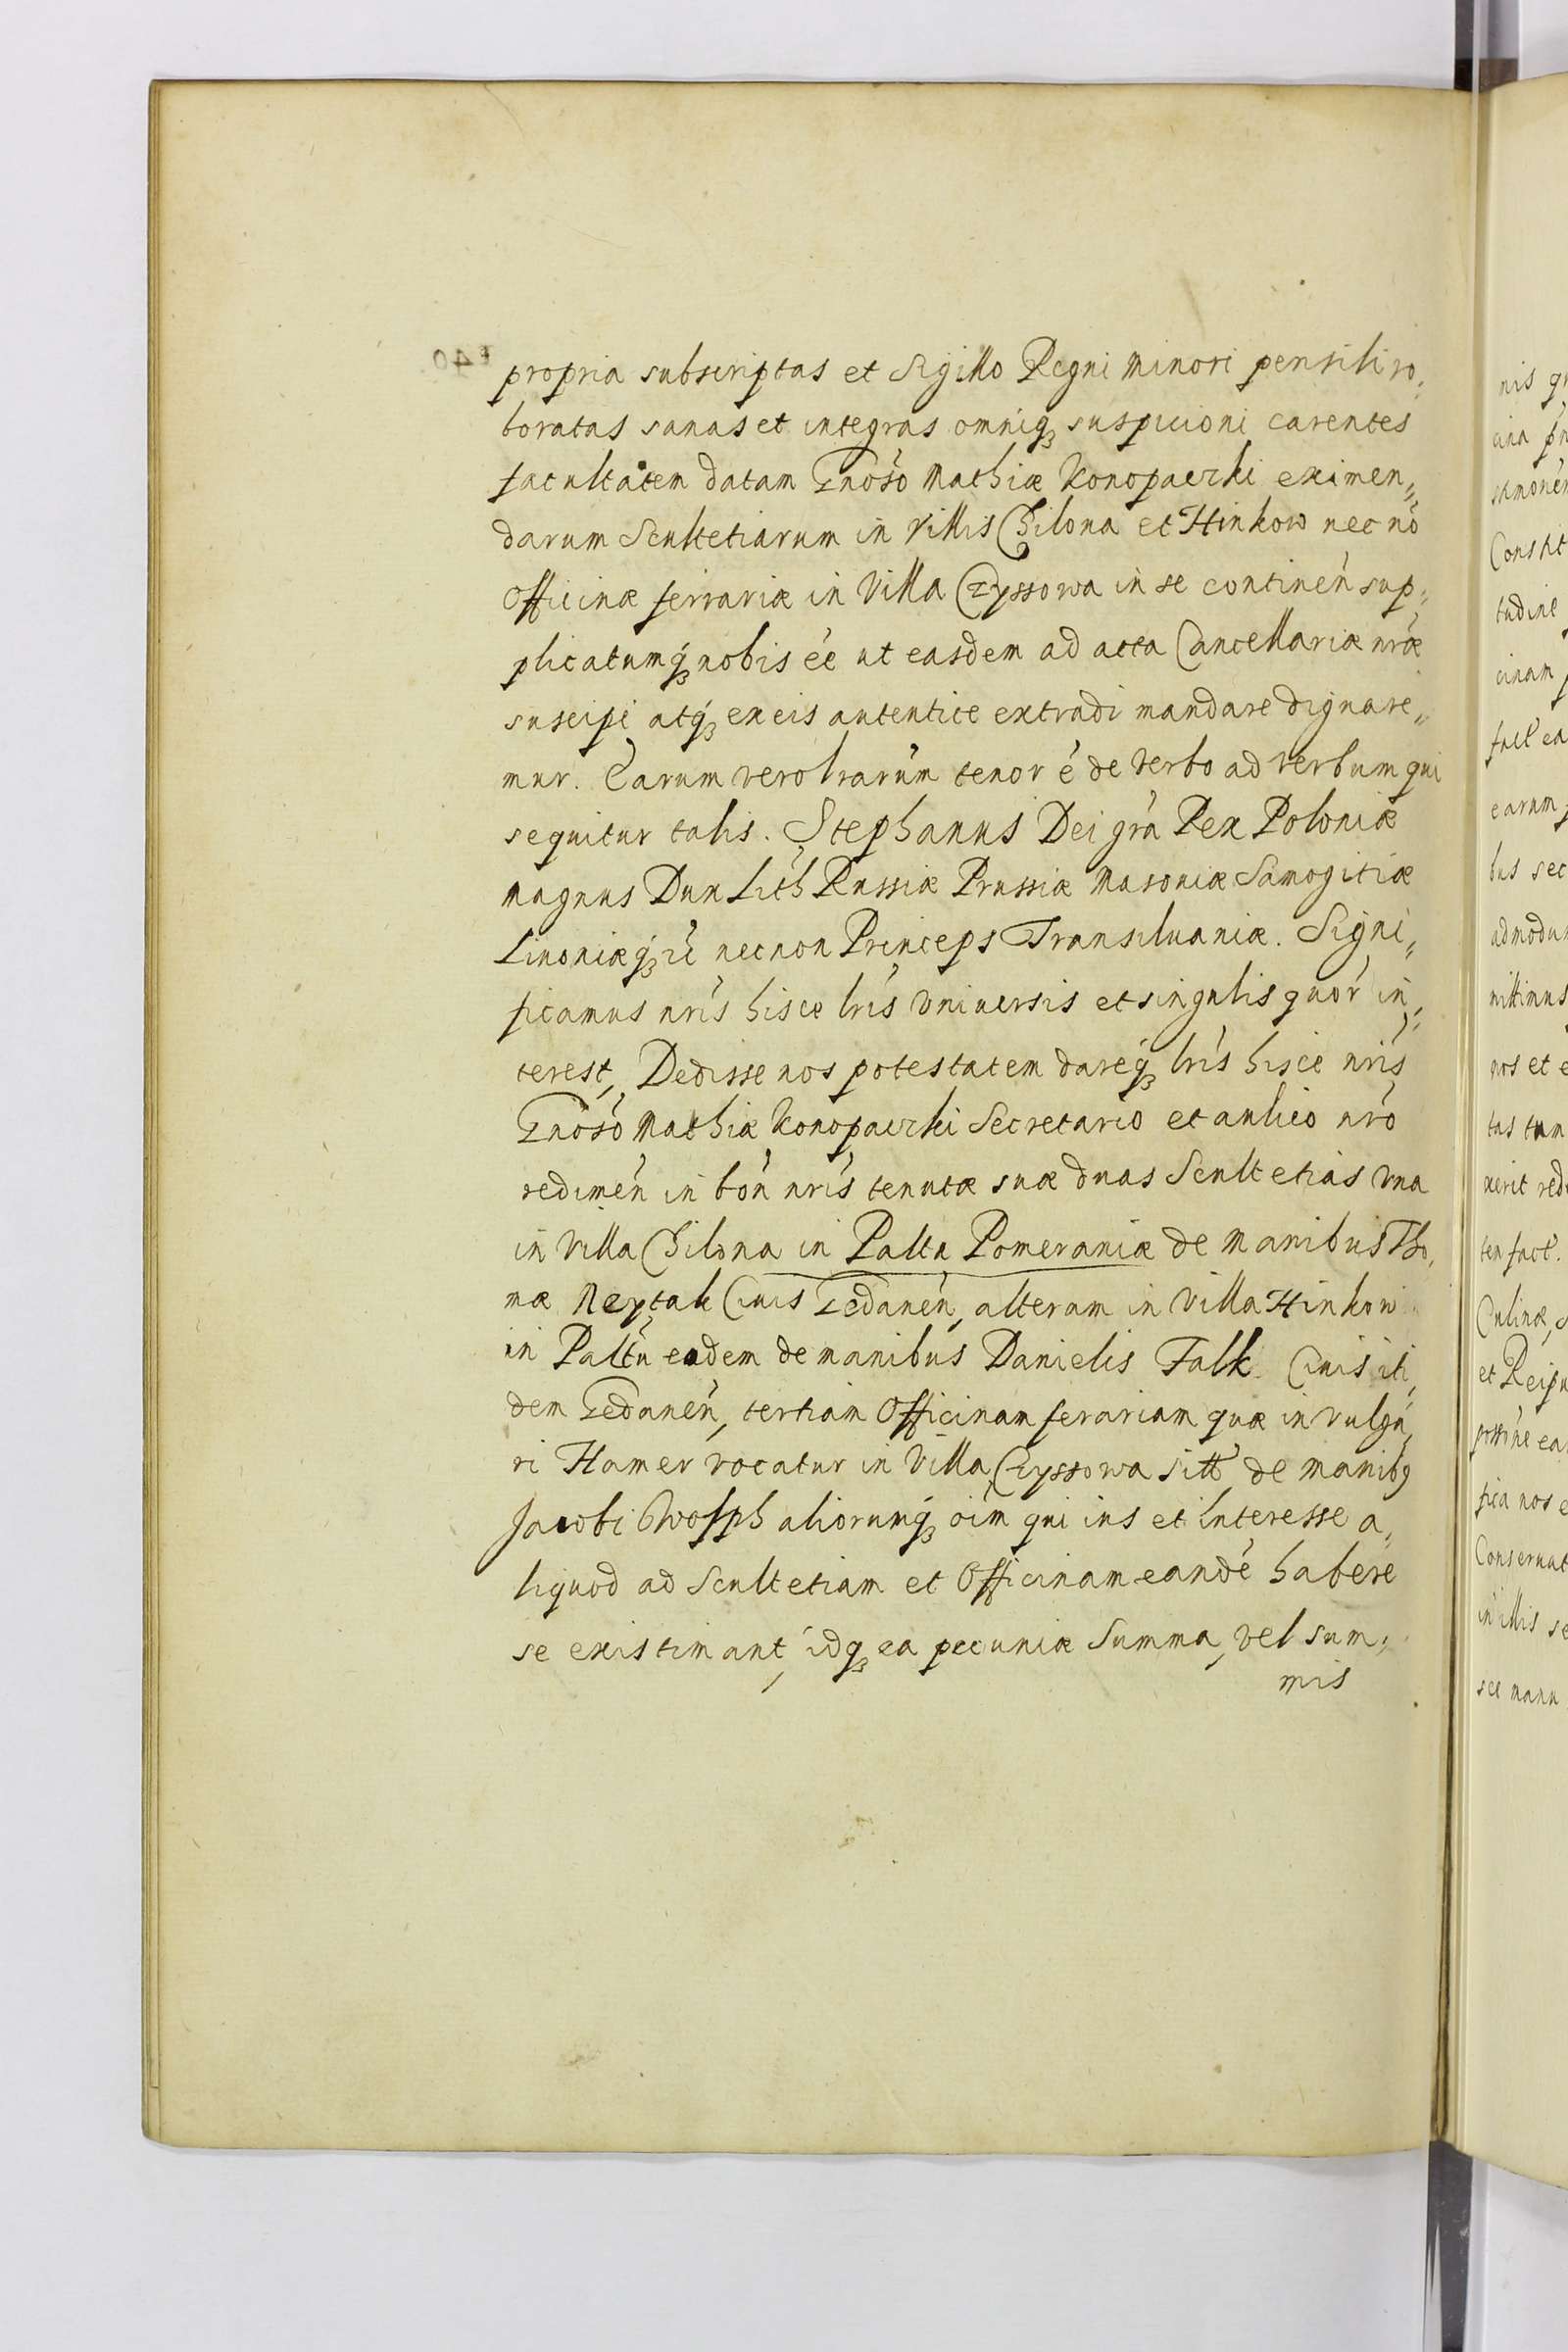 propria subscriptas et Sigillo Regni Minori pensili ro„
boratas sanas et integras omniq₃ suspicioni carentes
facultatem datam Gnoso Mathiæ Konopaczki eximen„
darum Scultetiarum in Villis Chilona et Hinkow nec nō
Officinæ ferrariæ in Villa Czyssowa in se continen̄ sup„
plicatumq₃ nobis ée ut easdem ad acta Cancellariæ nræ
suscipi atq₃ ex eis autentice extradi mandare dignare„
mur. Earum vero lrarum tenor é de verbo ad verbum qui
sequitur talis. Stephanus Dei gra Rex Poloniæ
Magnus Dux Lith Russiæ Prussiæ Masoviæ Samogitiæ
Livoniæq₃ zc̄ necnon Princeps Transiluaniæ. Signi„
ficamus nris hisce lris Vniuersis et singulis quor in„
terest, Dedisse nos potestatem dareq₃ lris hisce nris
Gnoso Mathiæ Konopaczki Secretario et aulico nro
redimen̄ in bon̄ nris tenutæ suæ duas Scultetias Vna
in Villa Chilona in Paltu Pomeraniæ de Manibus Tho„
mæ Neptak Ciuis Gedanen̄, alteram in Villa Hinkow
in Paltu eodem de manibus Danielis Falk Ciuis iti„
dem Gedanen̄, tertiam Officinam ferariam quæ in vulga„
ri Hamer vocatur in Villa Czyssowa sitt de Manibq
Jacobi Wolph aliorumq₃ oim qui ius et interesse a„
liquod ad Scultetiam et Officinam eandé habere
se existimant, idq₃ ea pecuniæ Summa, vel sum„
mis